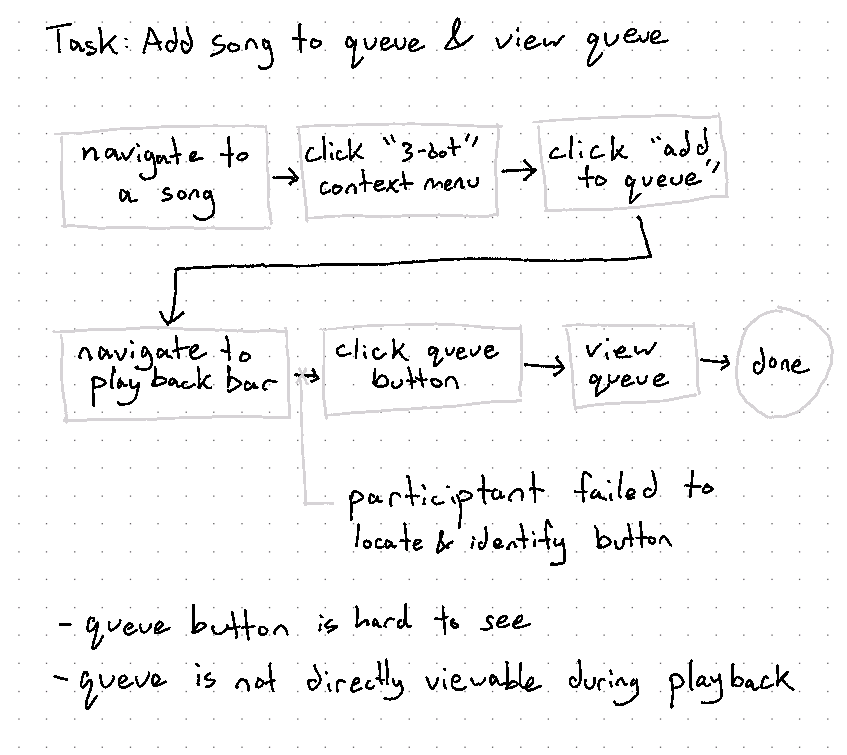 Task: Add song to queue & view queue
navigate to
a song
click "3-dot"
context menu
click "add
to queue"
navigate to
playback bar
click queue
button
view
queue
done
participtant failed to
locate & identify button
- queue button is hard to see
- queue is not directly viewable during playback